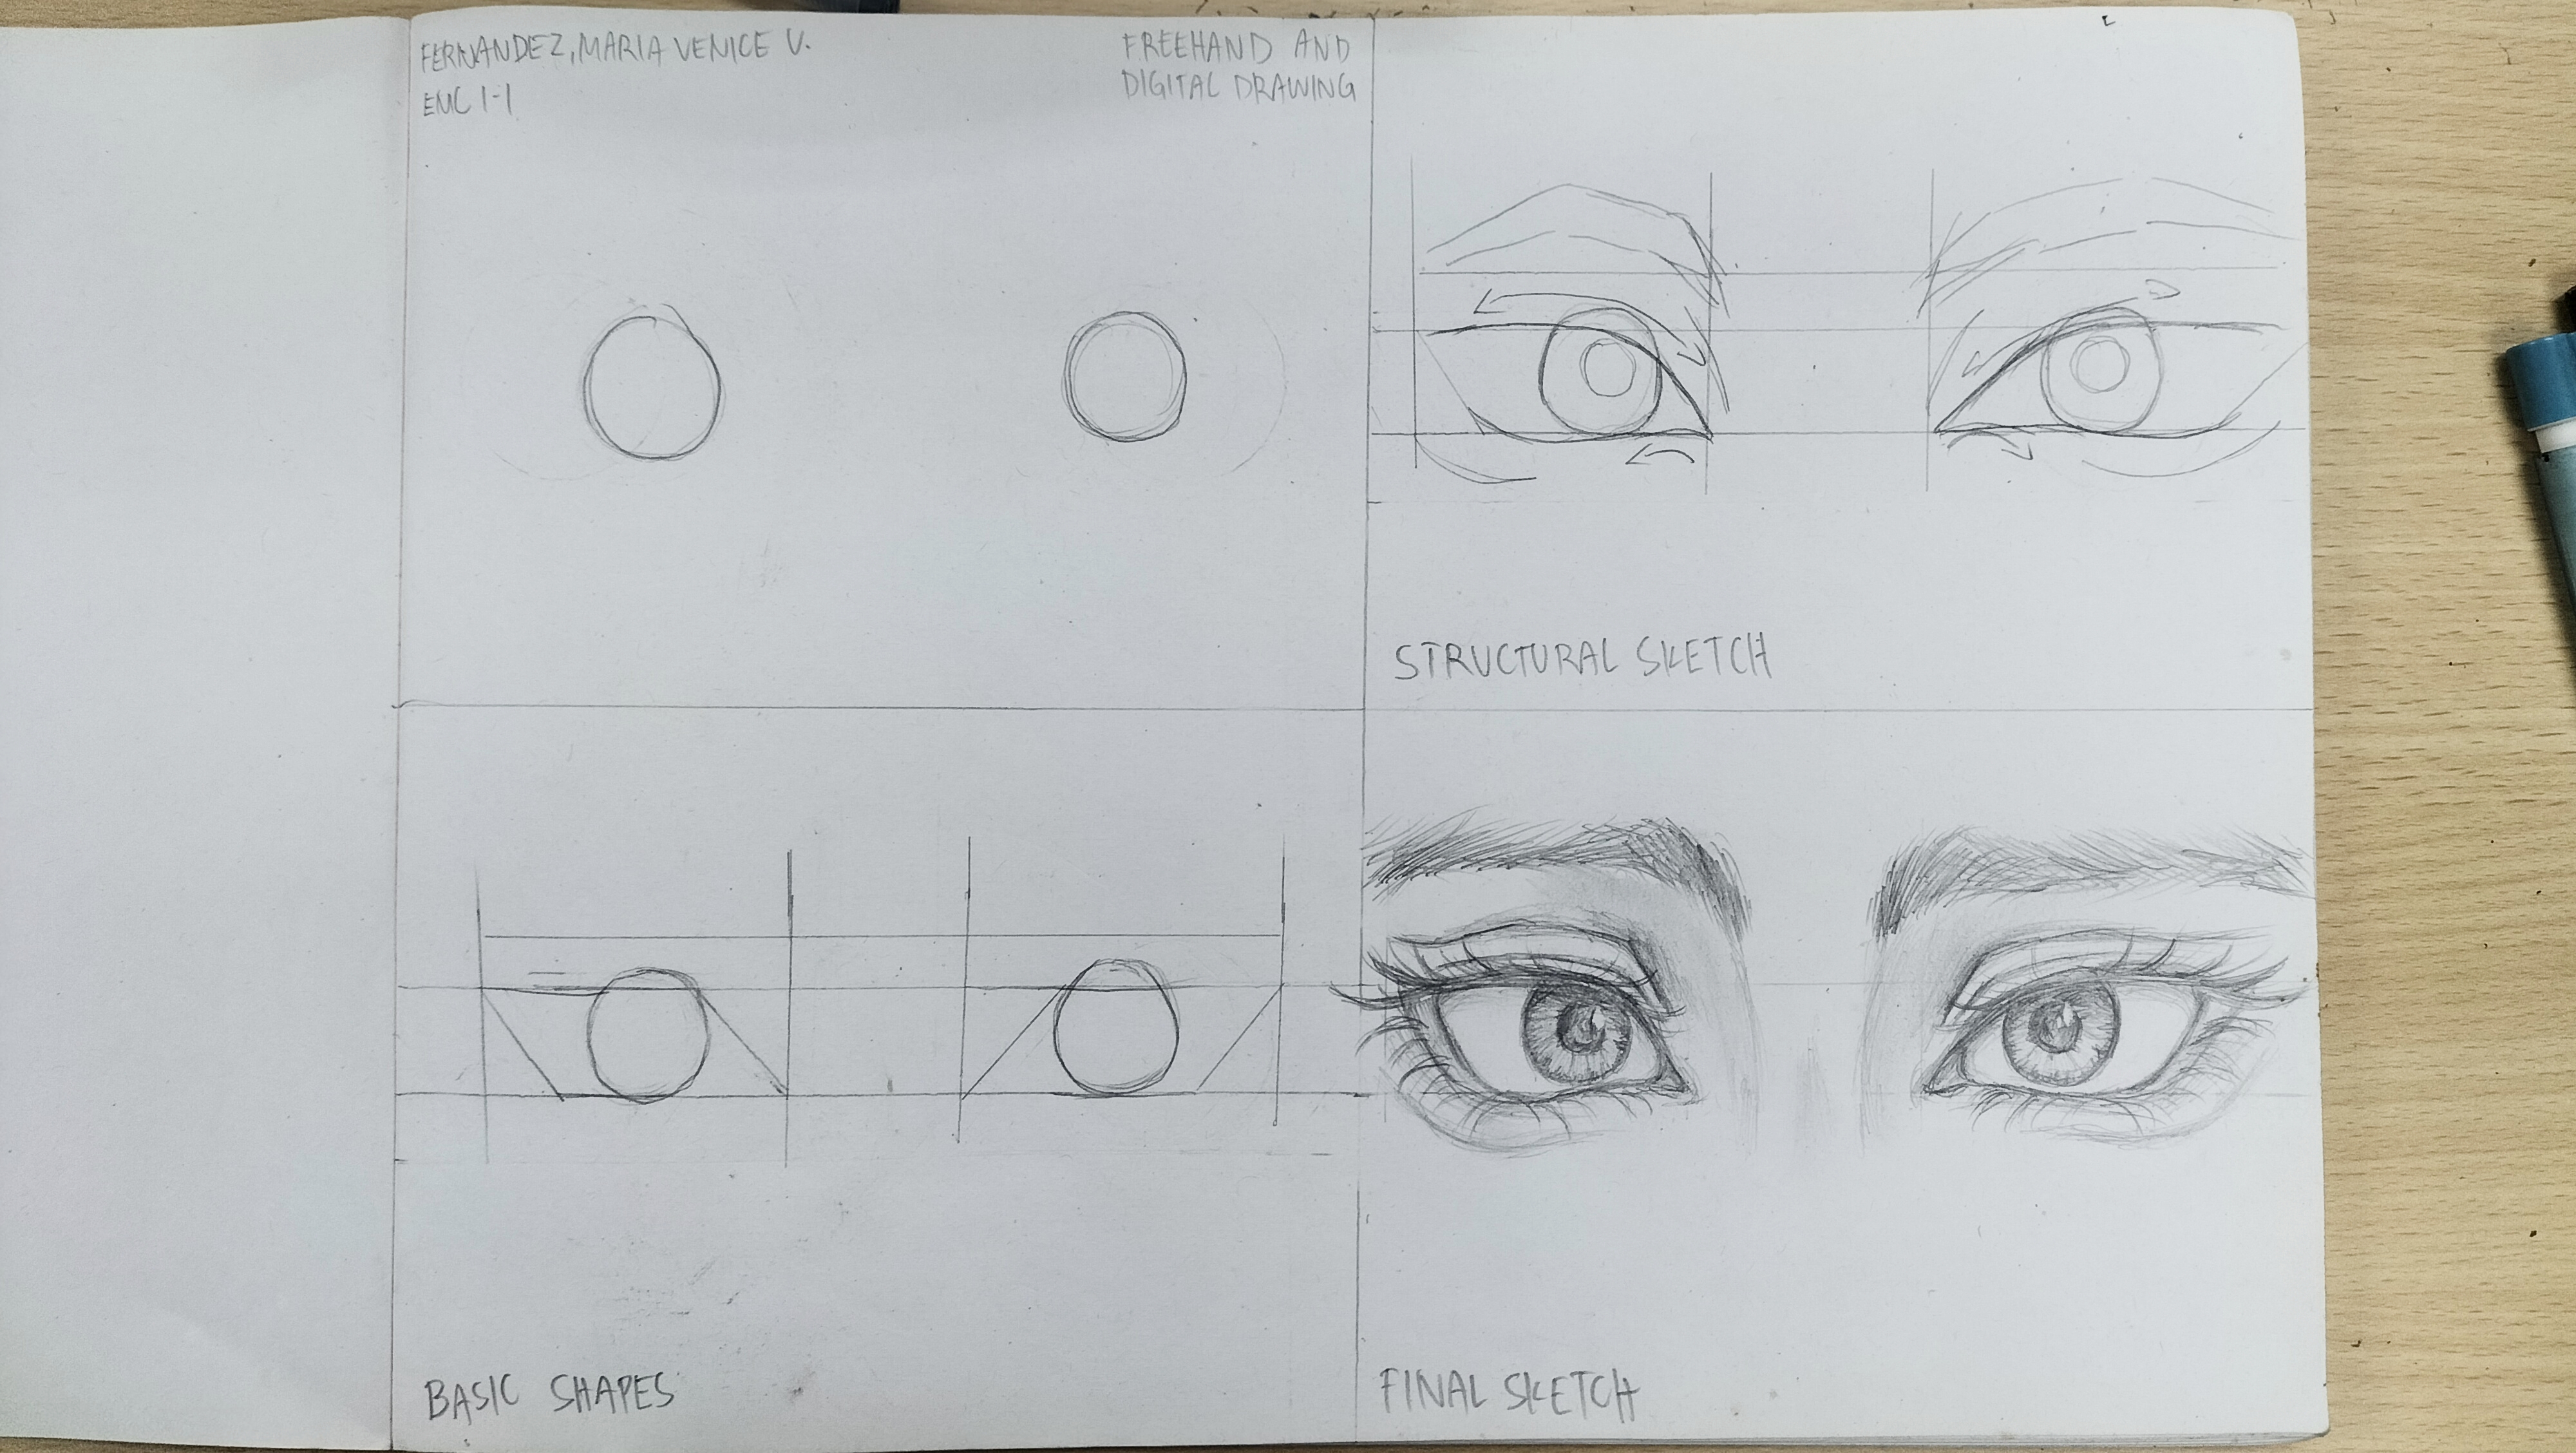 FERNANDEZ, MARIA VENICE V.
EMC 1-1
FREEHAND AND
DIGITAL DRAWING
STRUCTURAL SKETCH
BASIC SHAPES
FINAL SKETCH